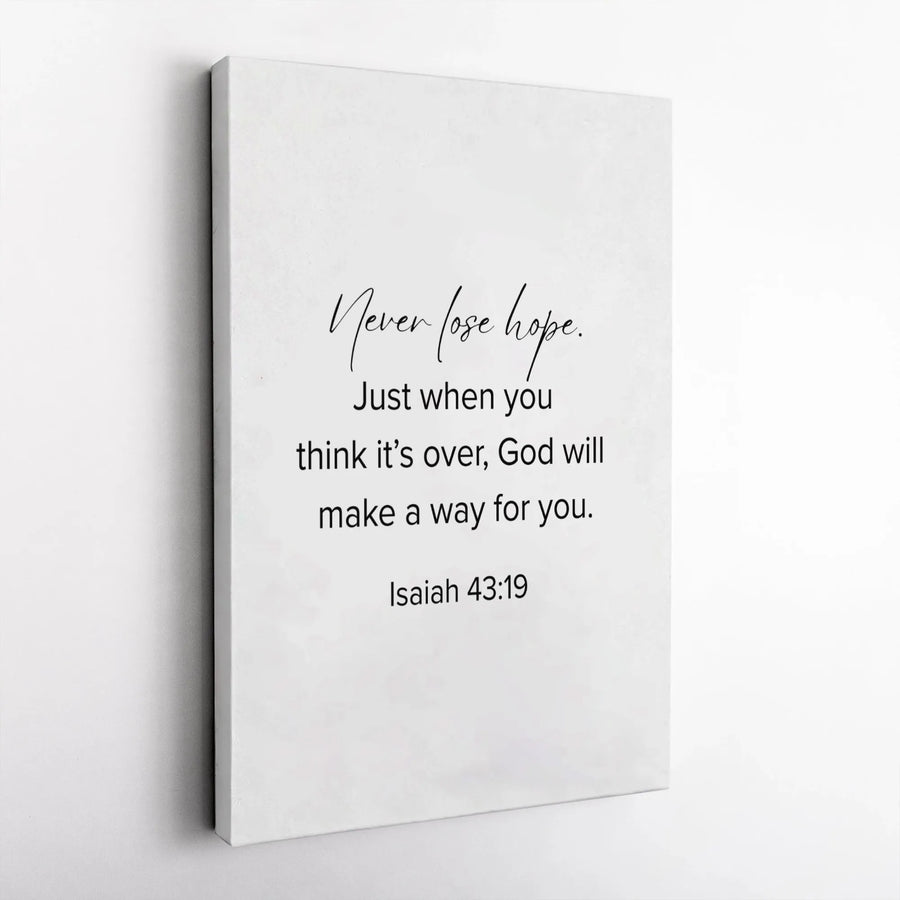 Never lose hope.
Just when you
think it’s over, God will
make a way for you.
Isaiah 43:19